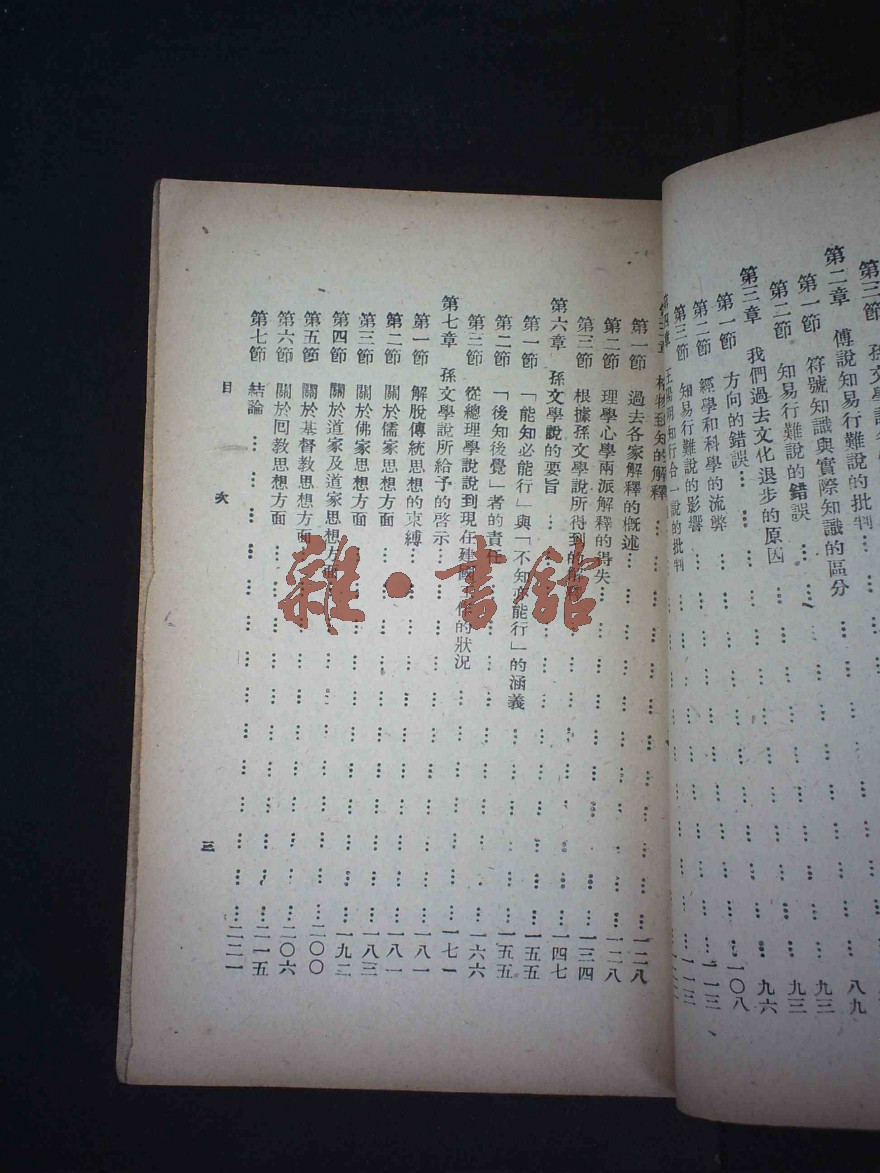 第三節 孫文學說
第二章 傅說知易行難說的批判……八九
第一節 符號知識與實際知識的區分……九三
第二節 知易行難說的錯誤……九三
第三章 我們過去文化退步的原因……九六
第一節 方向的錯誤……一〇八
第二節 經學和科學的流弊……一一三
第三節 知易行難說的影響……一一三
第四章 王陽明知行合一說的批判
到知的解釋……一二八
第一節 過去各家解釋的概述……一二八
第二節 理學心學兩派解釋的得失……一三四
第三節 根據孫文學說所得到的……一四七
第六章 孫文學說的要旨……一五五
第一節 「能知必能行」與「不知亦能行」的涵義……一五五
第二節 「後知後覺」者的責任……一六六
第三節 從總理學說說到現在建國工作的狀況……一七一
第七章 孫文學說所給予的啓示……一八一
第一節 解脫傳統思想的束縛……一八一
第二節 關於儒家思想方面……一八三
第三節 關於佛家思想方面……一九二
第四節 關於道家及道家思想方面……二〇〇
第五節 關於基督教思想方面……二〇六
第六節 關於回教思想方面……二一五
第七節 結論……二二一
目 次 三
雜·書館